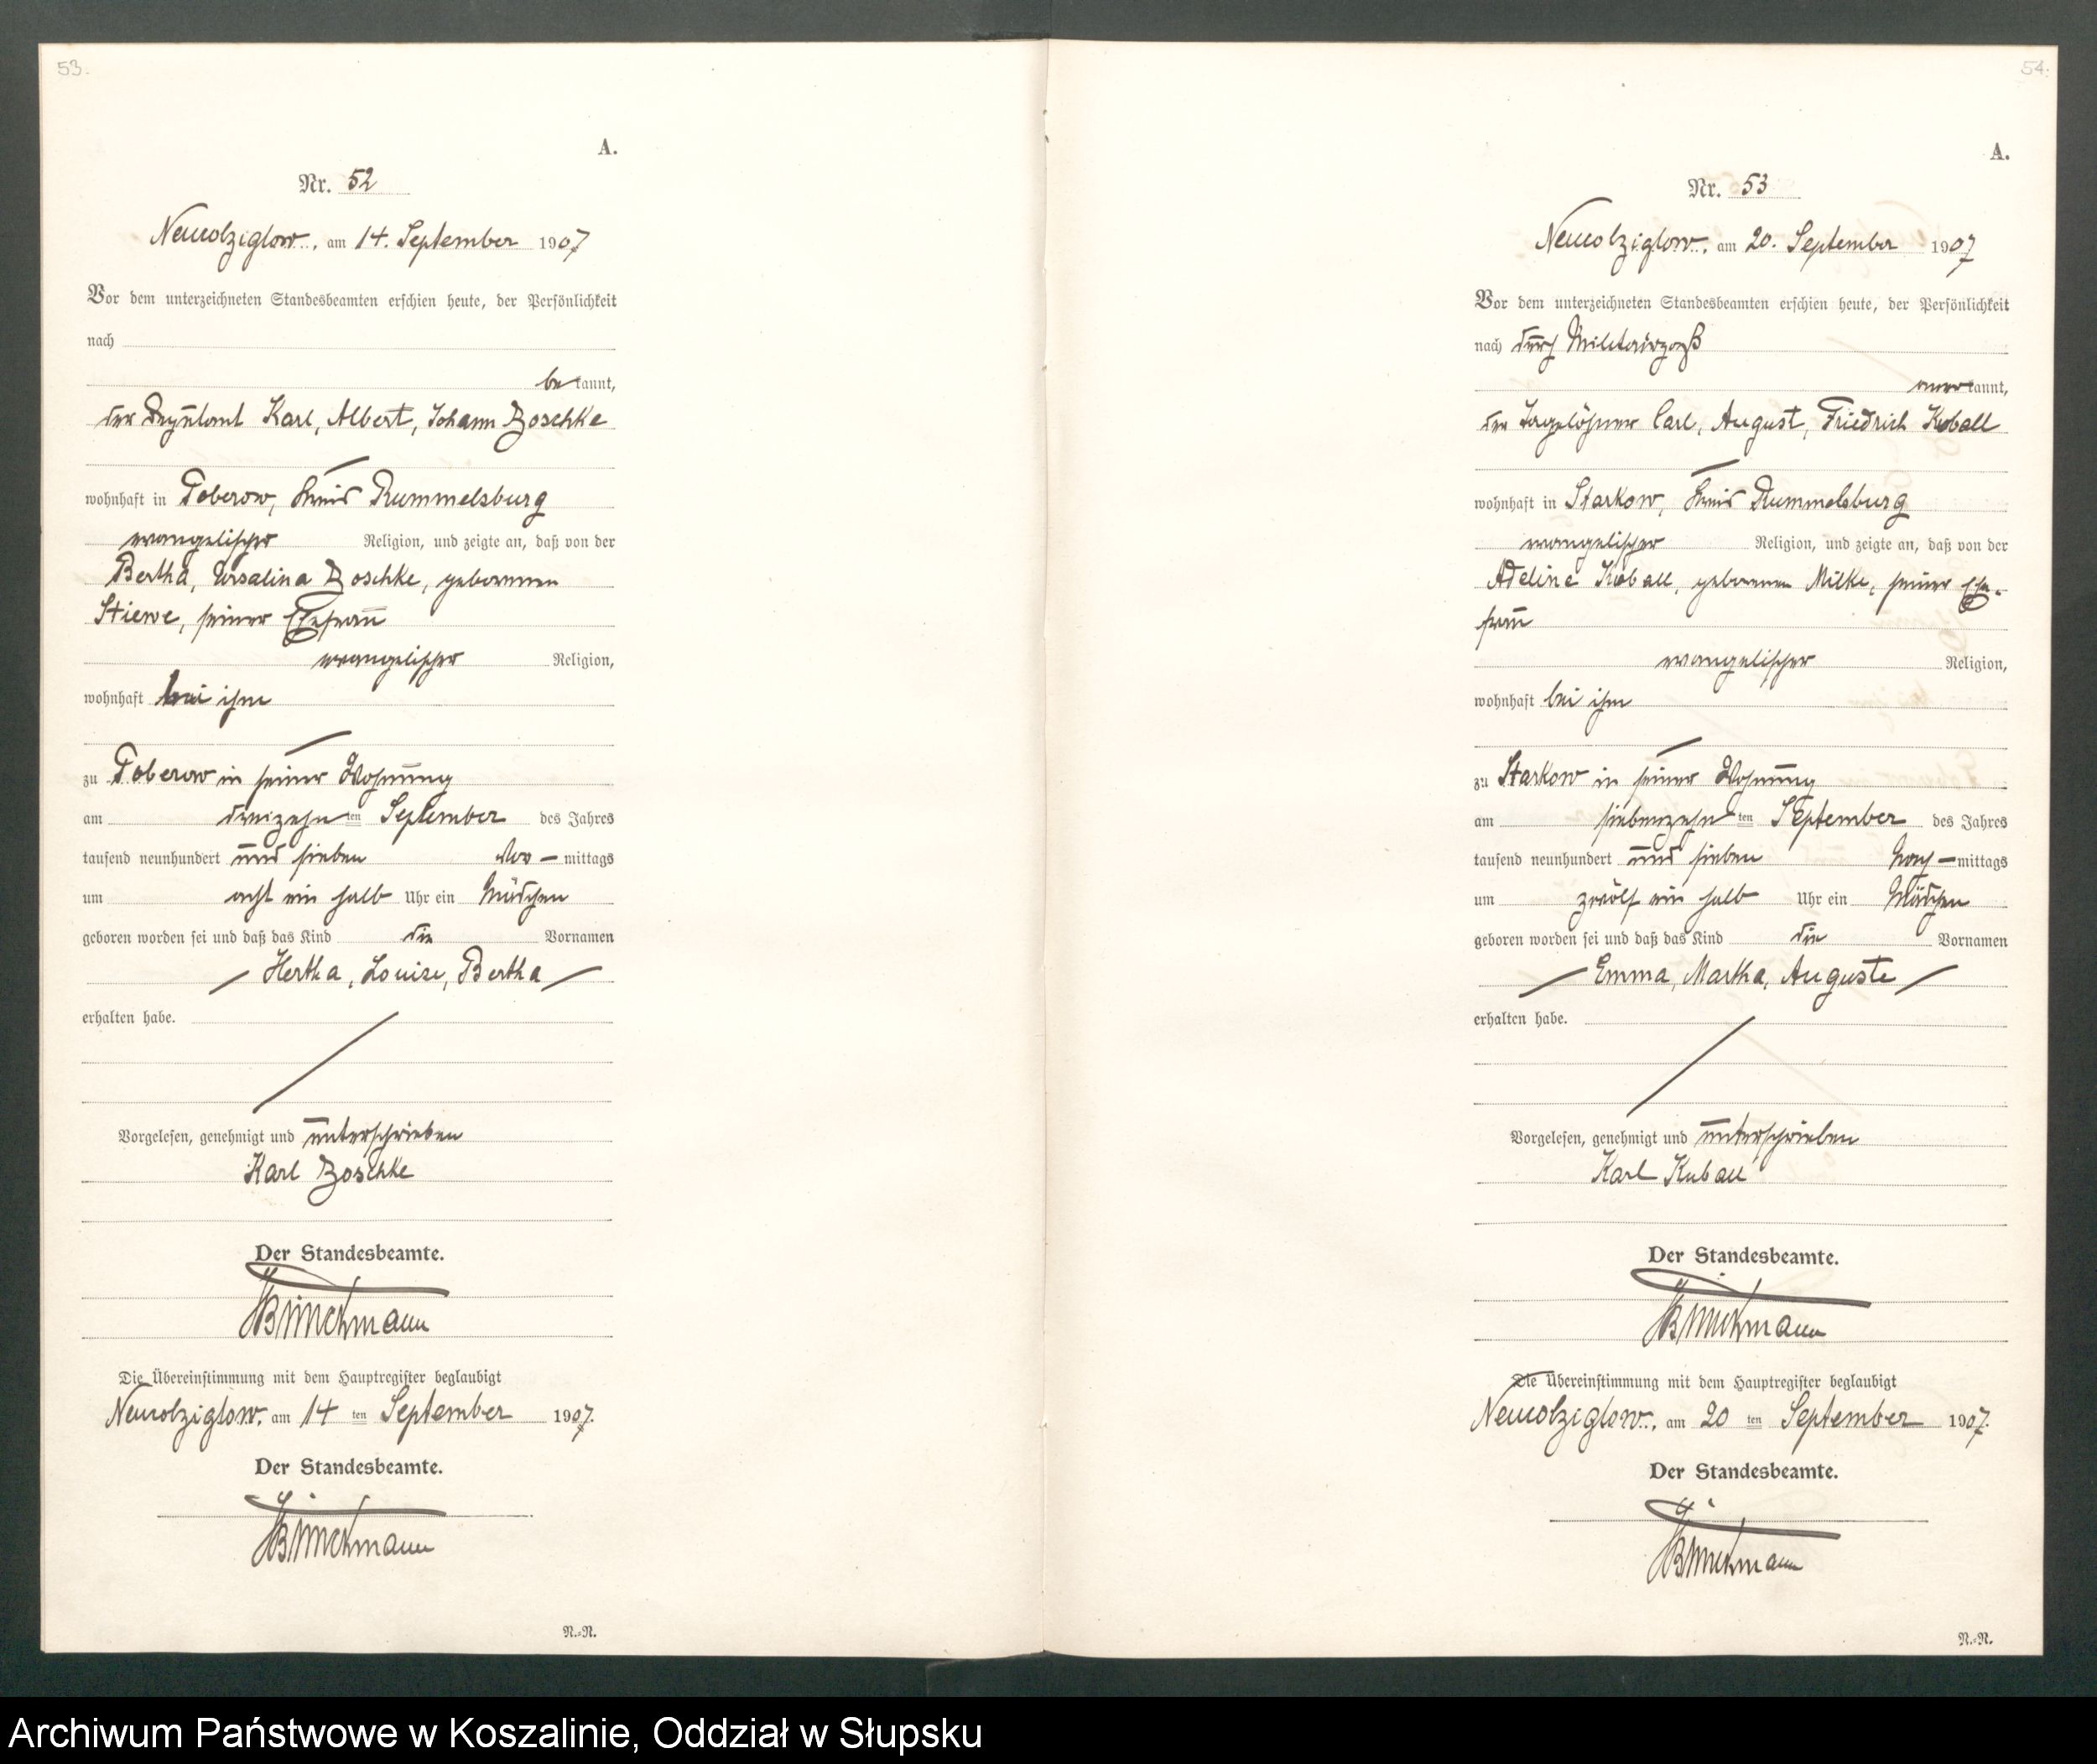 53.
A.
Nr. 52
Neukolziglow, am 14. September 1907
Vor dem unterzeichneten Standesbeamten erschien heute, der Persönlichkeit
nach
bekannt,
der Deputant Karl, Albert, Johann Zoschke
wohnhaft in Toberow, Kreis Rummelsburg
evangelischer Religion, und zeigte an, daß von der
Bertha, Ursalina Zoschke, geborenen
Stiewe, seiner Ehefrau
evangelischer Religion,
wohnhaft bei ihm
zu Toberow in seiner Wohnung
am dreizehnten September des Jahres
tausend neunhundert und sieben Vor-mittags
um acht ein halb Uhr ein Mädchen
geboren worden sei und daß das Kind die Vornamen
Hertha, Louise, Bertha
erhalten habe.
Vorgelesen, genehmigt und unterschrieben
Karl Zoschke
Der Standesbeamte.
Die Übereinstimmung mit dem Hauptregister beglaubigt
Neukolziglow, am 14 ten September 1907.
Der Standesbeamte.
N.=N.
54.
A.
Nr. 53
Neukolziglow, am 20. September 1907
Vor dem unterzeichneten Standesbeamten erschien heute, der Persönlichkeit
nach durch Militairpaß
anerkannt,
der Tagelöhner Carl, August, Friedrich Kuball
wohnhaft in Starkow, Kreis Rummelsburg
evangelischer Religion, und zeigte an, daß von der
Adeline Kuball, geborenen Milke, seiner Ehe-
frau
evangelischer Religion,
wohnhaft bei ihm
zu Starkow in seiner Wohnung
am siebenzehnten September des Jahres
tausend neunhundert und sieben Nach-mittags
um zwölf ein halb Uhr ein Mädchen
geboren worden sei und daß das Kind die Vornamen
Emma, Martha, Auguste
erhalten habe.
Vorgelesen, genehmigt und unterschrieben
Karl Kuball
Der Standesbeamte.
Die Übereinstimmung mit dem Hauptregister beglaubigt
Neukolziglow, am 20 ten September 1907.
Der Standesbeamte.
N.=N.
Archiwum Państwowe w Koszalinie, Oddział w Słupsku